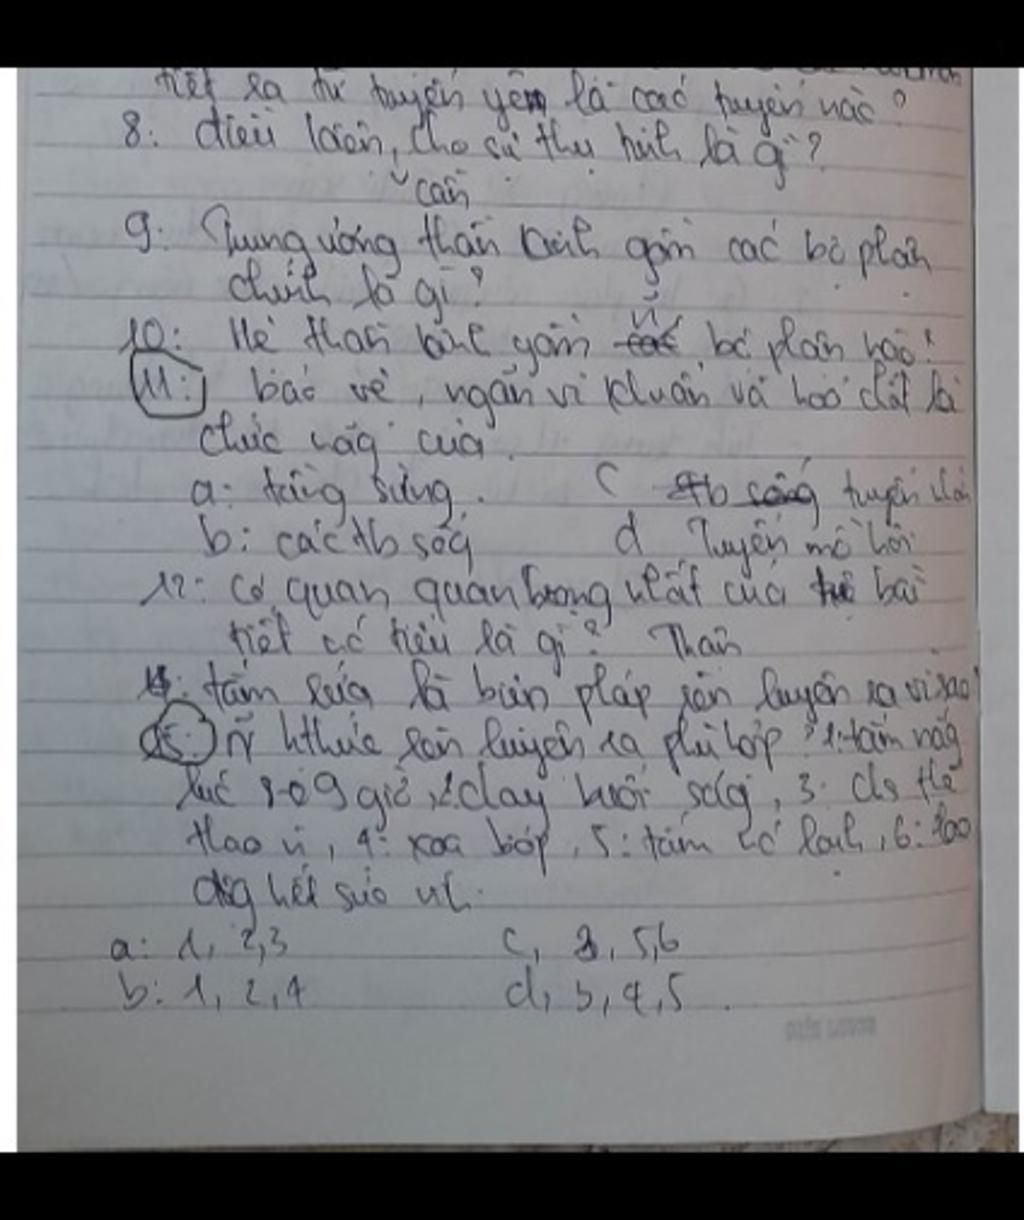 tiết ra từ tuyến yên là các tuyến nào?
8: điều kiện, cho sự thụ tinh là gì?
cần
9: Trung ương thần kinh gồm các bộ phận
chính là gì?
10: Hệ thần kinh gồm bộ phận nào?
11: bảo vệ, ngăn vi khuẩn và hoá chất là
chức năg của
a: tầng sừng.
c tb sống tuyến
b: các tb sốg
d Tuyến mồ hôi
12: Cơ quan quan trọng nhất của bài
tiết nc tiểu là gì? Thận
tắm nắng là biện pháp rèn luyện da vì sao
15: N~ hthức rèn luyện da phù hợp? 1: tắm nắg
lúc 8-09 giờ, 2 chạy buổi ság, 3: chs thể
thao, 4: xoa bóp, 5: tắm nc lạnh, 6: lao
độg hết sức
a: 1, 2,3
c, 3, 5,6
b: 1, 2,4
d, 3,4,5